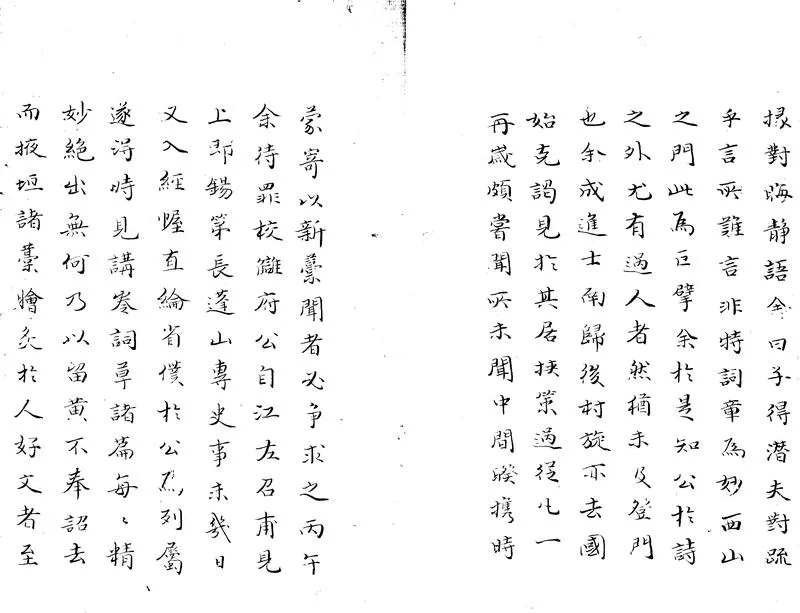 掾對晦静語余曰子得潜夫對疏
乎言所難言非特詞章為妙西山
之門此為巨擘余於是知公於詩
之外尤有過人者然猶未及登門
也余成進士南歸後村旋亦去國
始克謁見於其居挾策過從凡一
再歲頗嘗聞所未聞中間睽攜時
蒙寄以新藁聞者必争求之丙午
余待罪校讎府公自江左召甫見
上即錫第長蓬山專史事未幾日
又入經幄直綸省僕於公為列屬
遂得時見講卷詞草諸篇每〻精
妙絶出無何乃以留黄不奉詔去
而掖垣諸藁膾炙於人好文者至